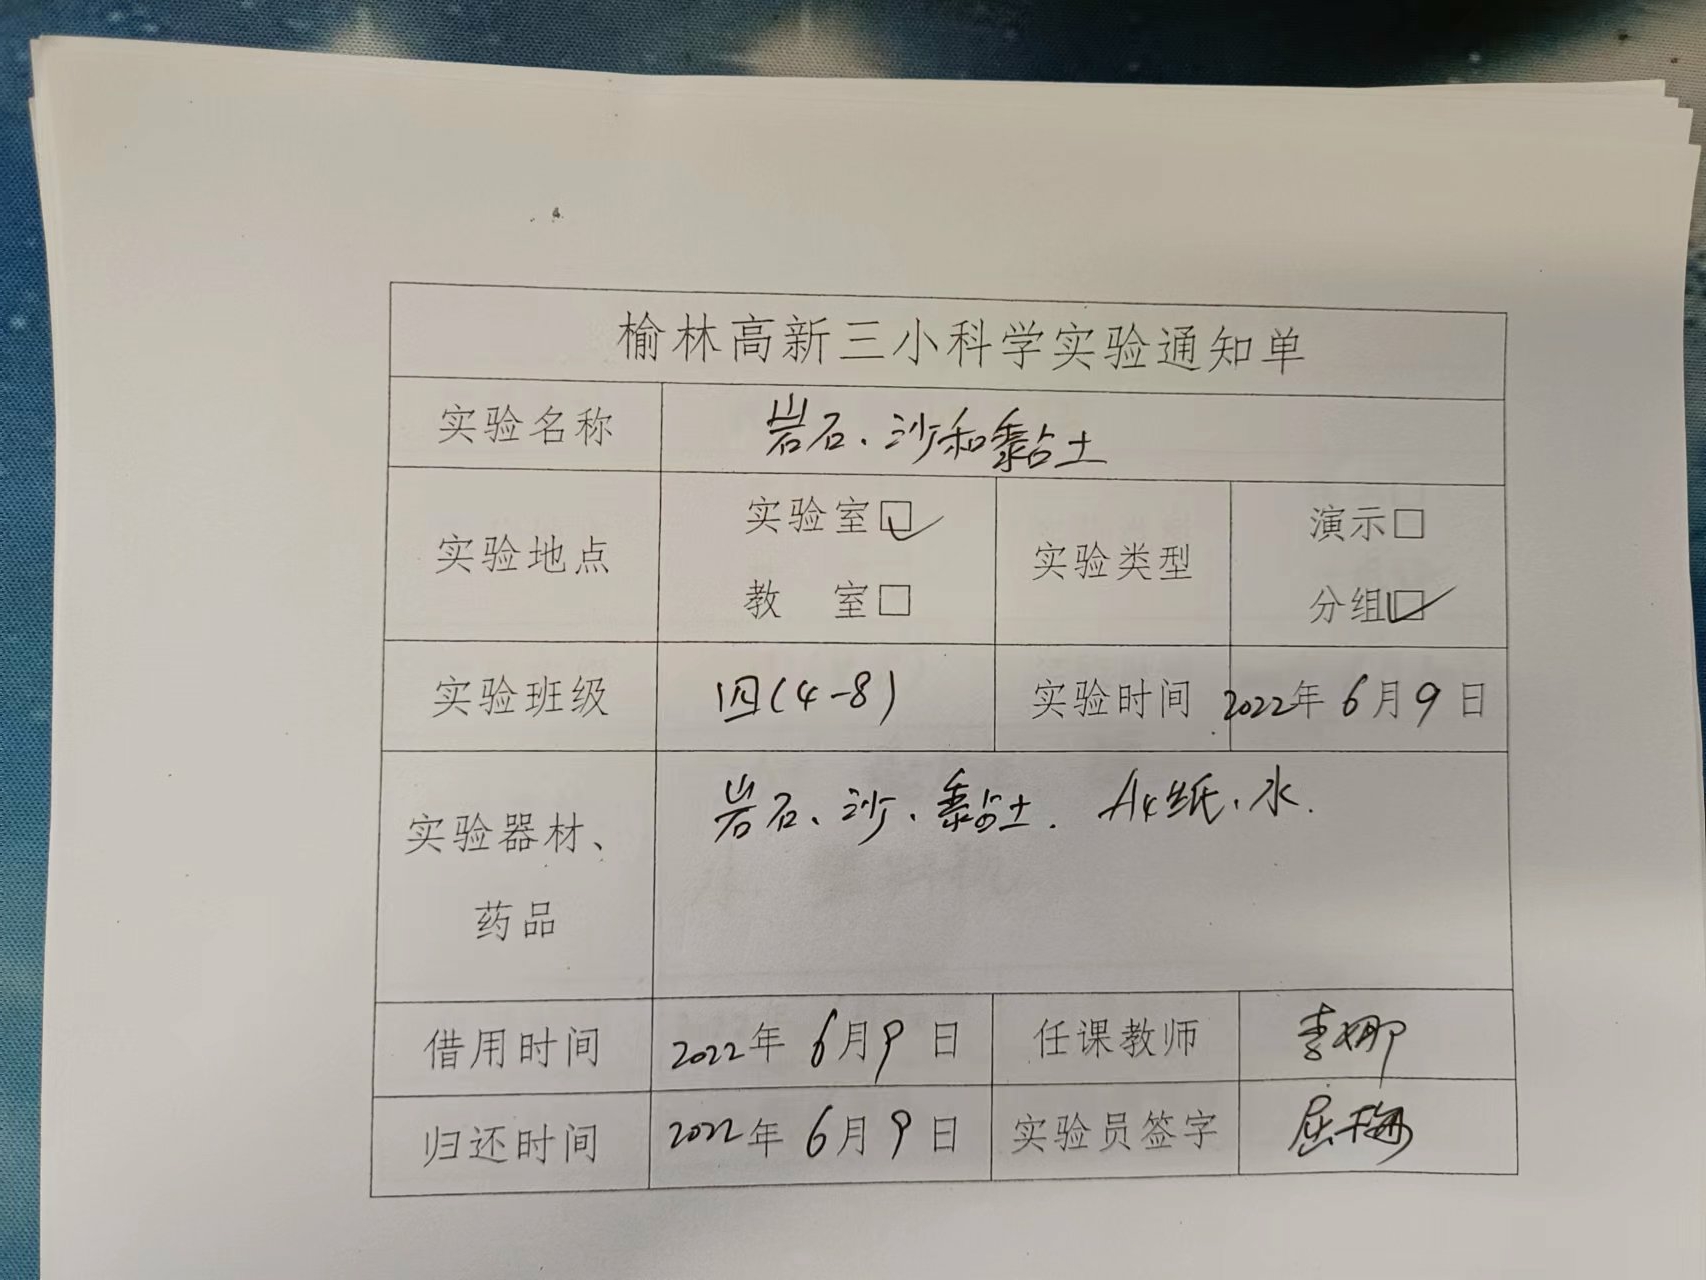 榆林高新三小科学实验通知单
实验名称 岩石、沙和黏土
实验地点 实验室☑ 教 室□ 实验类型 演示□ 分组☑
实验班级 四(4-8) 实验时间 2022年6月9日
实验器材、药品 岩石、沙、黏土. A4纸、水.
借用时间 2022年6月9日 任课教师 李娜
归还时间 2022年6月9日 实验员签字 屈梅